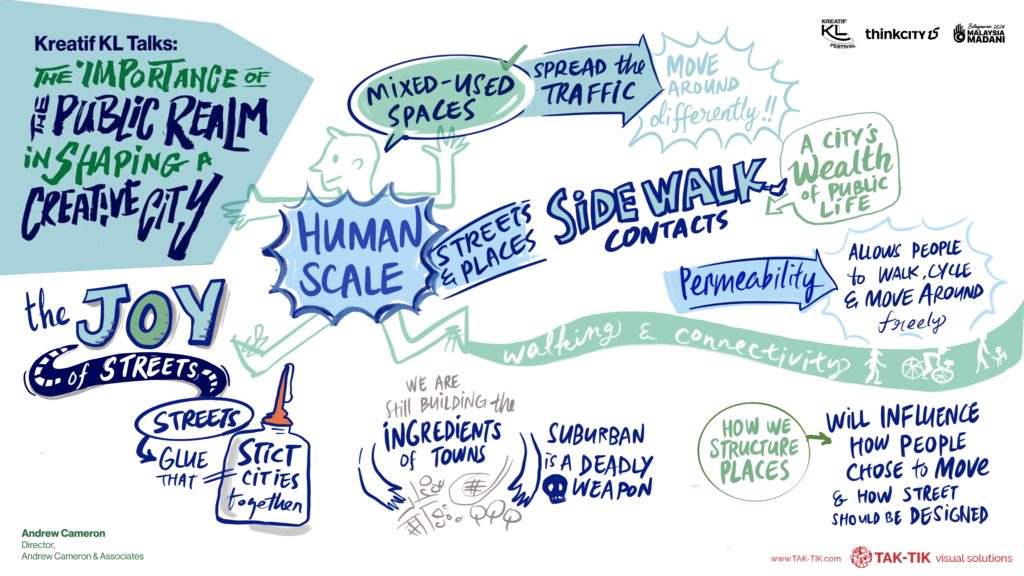 Kreatif KL Talks:
THE IMPORTANCE OF
THE PUBLIC REALM
IN SHAPING A
CREATIVE CITY
KREATIF
KL
FESTIVAL
thinkcity 15
Belanjawan 2024
MALAYSIA
MADANI
MIXED-USED
SPACES
SPREAD the
TRAFFIC
MOVE
AROUND
differently!!
HUMAN
SCALE
STREETS
& PLACES
SIDEWALK
CONTACTS
A CITY'S
Wealth
OF PUBLIC
LIFE
Permeability
ALLOWS PEOPLE
to WALK, CYCLE
& MOVE AROUND
freely
walking & connectivity
the JOY
of STREETS,
STREETS
GLUE
THAT
STICT
CITIES
together
WE ARE
Still BUILDING the
INGREDIENTS
of TOWNS
SUBURBAN
is A DEADLY
WEAPON
HOW WE
STRUCTURE
PLACES
WILL INFLUENCE
HOW PEOPLE
CHOSE to MOVE
& HOW STREET
SHOULD BE DESIGNED
Andrew Cameron
Director,
Andrew Cameron & Associates
www.TAK-TIK.com
TAK-TIK visual solutions